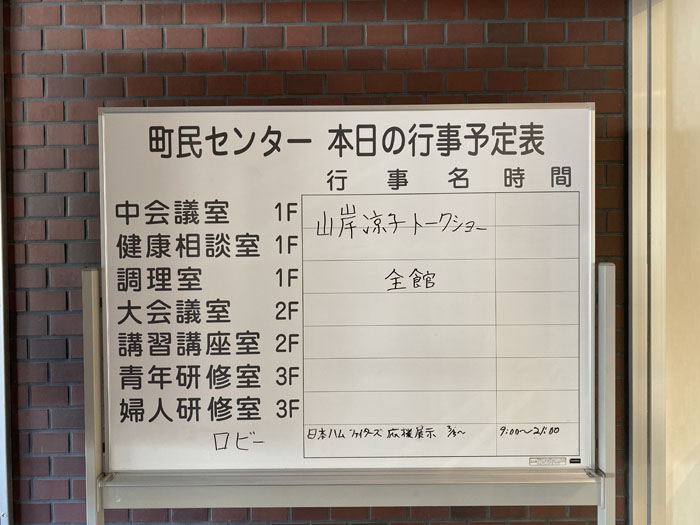 町民センター 本日の行事予定表
行事名 時間
中会議室 1F 山岸凉子トークショー
健康相談室 1F
調理室 1F 全館
大会議室 2F
講習講座室 2F
青年研修室 3F
婦人研修室 3F
ロビー 日本ハムファイターズ 応援展示 9:00〜21:00